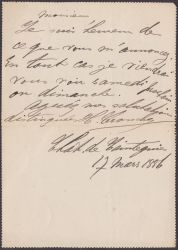 monsieur
Je suis heureux de
ce que vous m'annoncez
En tout cas je viendrai
vous voir samedi
ou dimanche.
Agréez nos salutations
distinguées
17 mars 1896